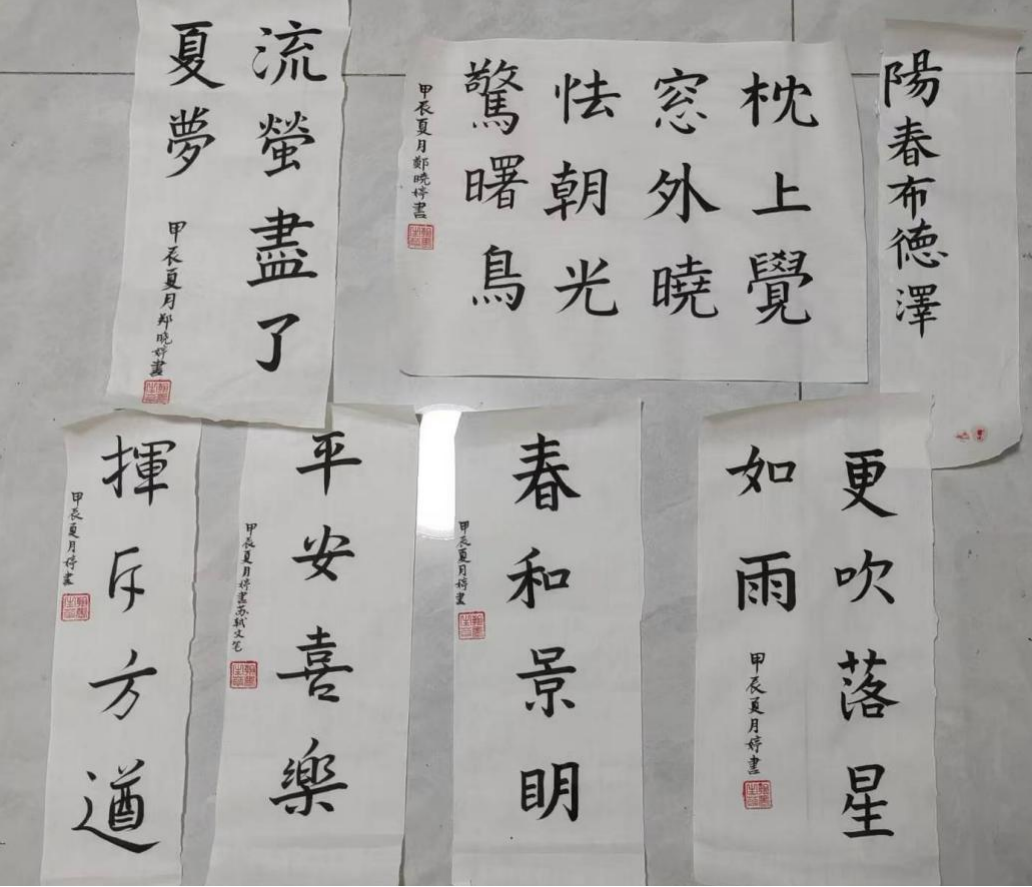 陽春布徳澤
枕上覺
窓外曉
怯朝光
驚曙鳥
甲辰夏月鄭曉婷書
流螢盡了
夏夢
甲辰夏月郑晓婷書
更吹落星
如雨
甲辰夏月婷書
春和景明
甲辰夏月婷書
平安喜樂
甲辰夏月婷書苏轼文笔
揮斥方遒
甲辰夏月婷書